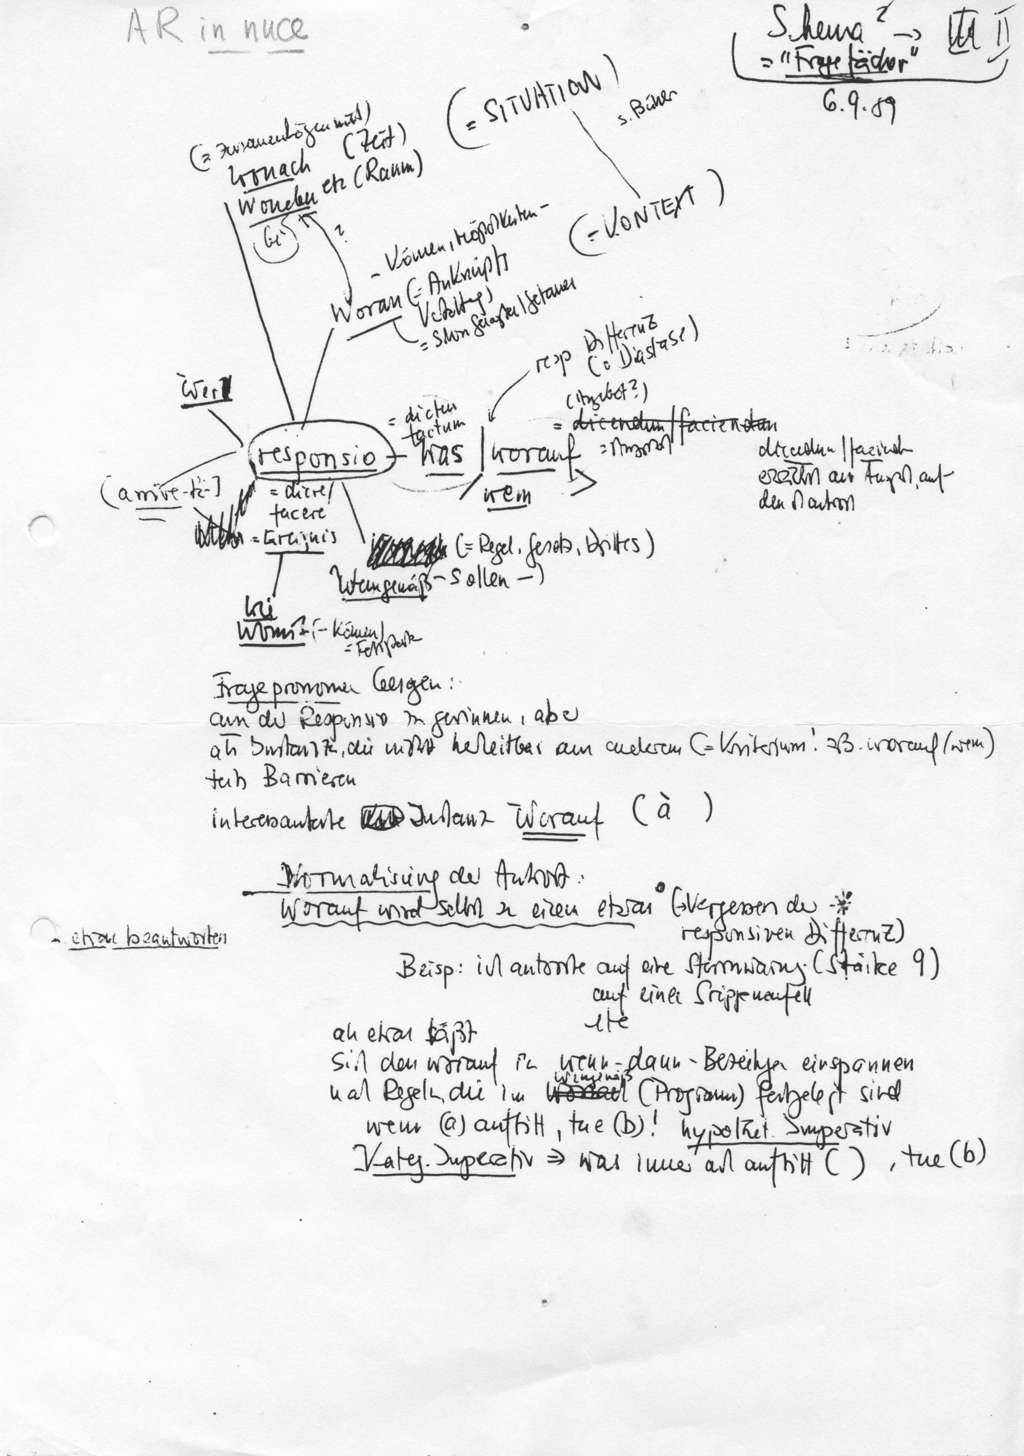 AR in nuce
Schema? → III II
= "Fragefächer"
6.9.89
(= SITUATION)
s. Bühler
(= KONTEXT)
wonach (Zeit)
Woneben etc (Raum)
bei
?
- Können, Möglichkeiten -
Woran (= Anknüpfg
= Schon Gesagtes/Getanes
resp Differenz
(= Diastase)
(Angebot?)
Wer
= dictum
factum
= dicendum/faciendum
responsio - was / worauf
= Anspruch
wem
dicendum/faciendum
den Antwort
(arrive-t-il)
= dicere/
facere
= Ereignis
(= Regel, Gesetz, Drittes)
Wemgemäß - Sollen -)
wie
Womit - Können/
Fragepronomen besagen:
aus der Responsio zu gewinnen, aber
als Instanz, die nicht herleitbar aus anderem (= Kriterium! zB. worauf/wem)
teils Barrieren
interessanteste Instanz Worauf (à )
Normalisierung der Antwort:
Worauf wird selbst zu einem etwas (→ Vergessen der
responsiven Differenz)
- etwas beantworten
Beisp: ich antworte auf eine Sturmwarnung (Stärke 9)
auf einen Grippeanfall
etc
als etwas läßt
sich das worauf in wenn-dann-Beziehgen einspannen
nach Regeln, die im wemgemäß (Programm) festgelegt sind
wenn (a) auftritt, tue (b)! hypothet. Imperativ
Kateg. Imperativ ⇒ was immer auch auftritt ( ), tue (b)